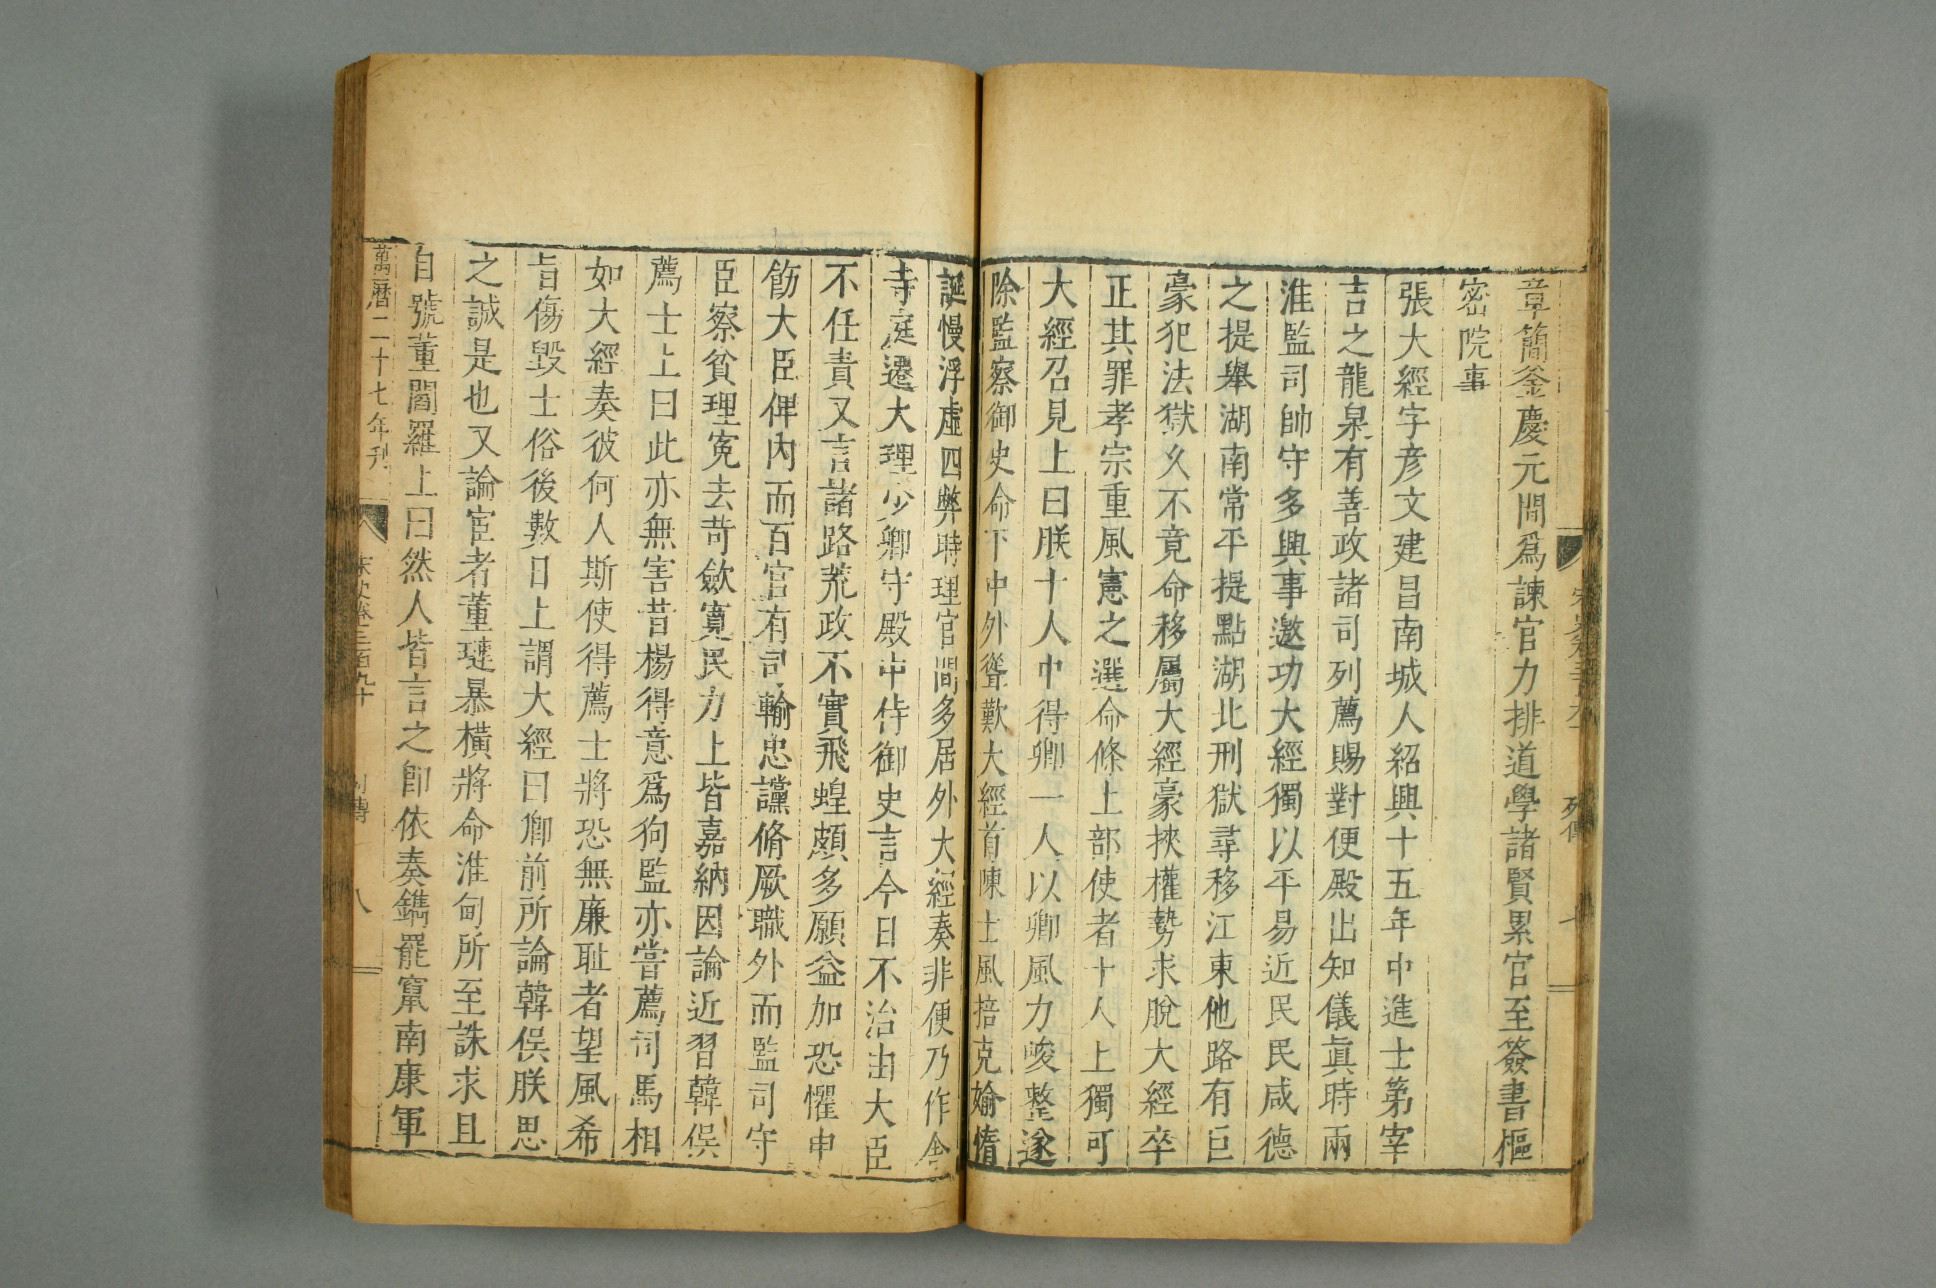 章簡釜慶元間爲諫官力排道學諸賢累官至簽書樞
密院事
張大經字彦文建昌南城人紹興十五年中進士第宰
吉之龍泉有善政諸司列薦賜對便殿出知儀眞時兩
淮監司帥守多興事邀功大經獨以平易近民民咸德
之提舉湖南常平提點湖北刑獄尋移江東他路有巨
豪犯法獄久不竟命移屬大經豪挾權勢求脫大經卒
正其罪孝宗重風憲之選命條上部使者十人上獨可
大經召見上曰朕十人中得卿一人以卿風力峻整遂
除監察御史命下中外聳歎大經首陳士風掊克婾惰
誕慢浮虛四弊時理官間多居外大經奏非便乃作舍
寺庭遷大理少卿守殿中侍御史言今日不治由大臣
不任責又言諸路荒政不實飛蝗頗多願益加恐懼申
飭大臣俾內而百官有司輸忠讜脩厥職外而監司守
臣察貧理寃去苛斂寛民力上皆嘉納因論近習韓俁
薦士上曰此亦無害昔楊得意爲狗監亦嘗薦司馬相
如大經奏彼何人斯使得薦士將恐無廉耻者望風希
旨傷毀士俗後數日上謂大經曰卿前所論韓俁朕思
之誠是也又論宦者董璉暴橫將命淮甸所至誅求且
自號董閻羅上曰然人皆言之卽依奏鐫罷竄南康軍
萬曆二十七年刋
宋史卷三百九十
列傳
八
列傳